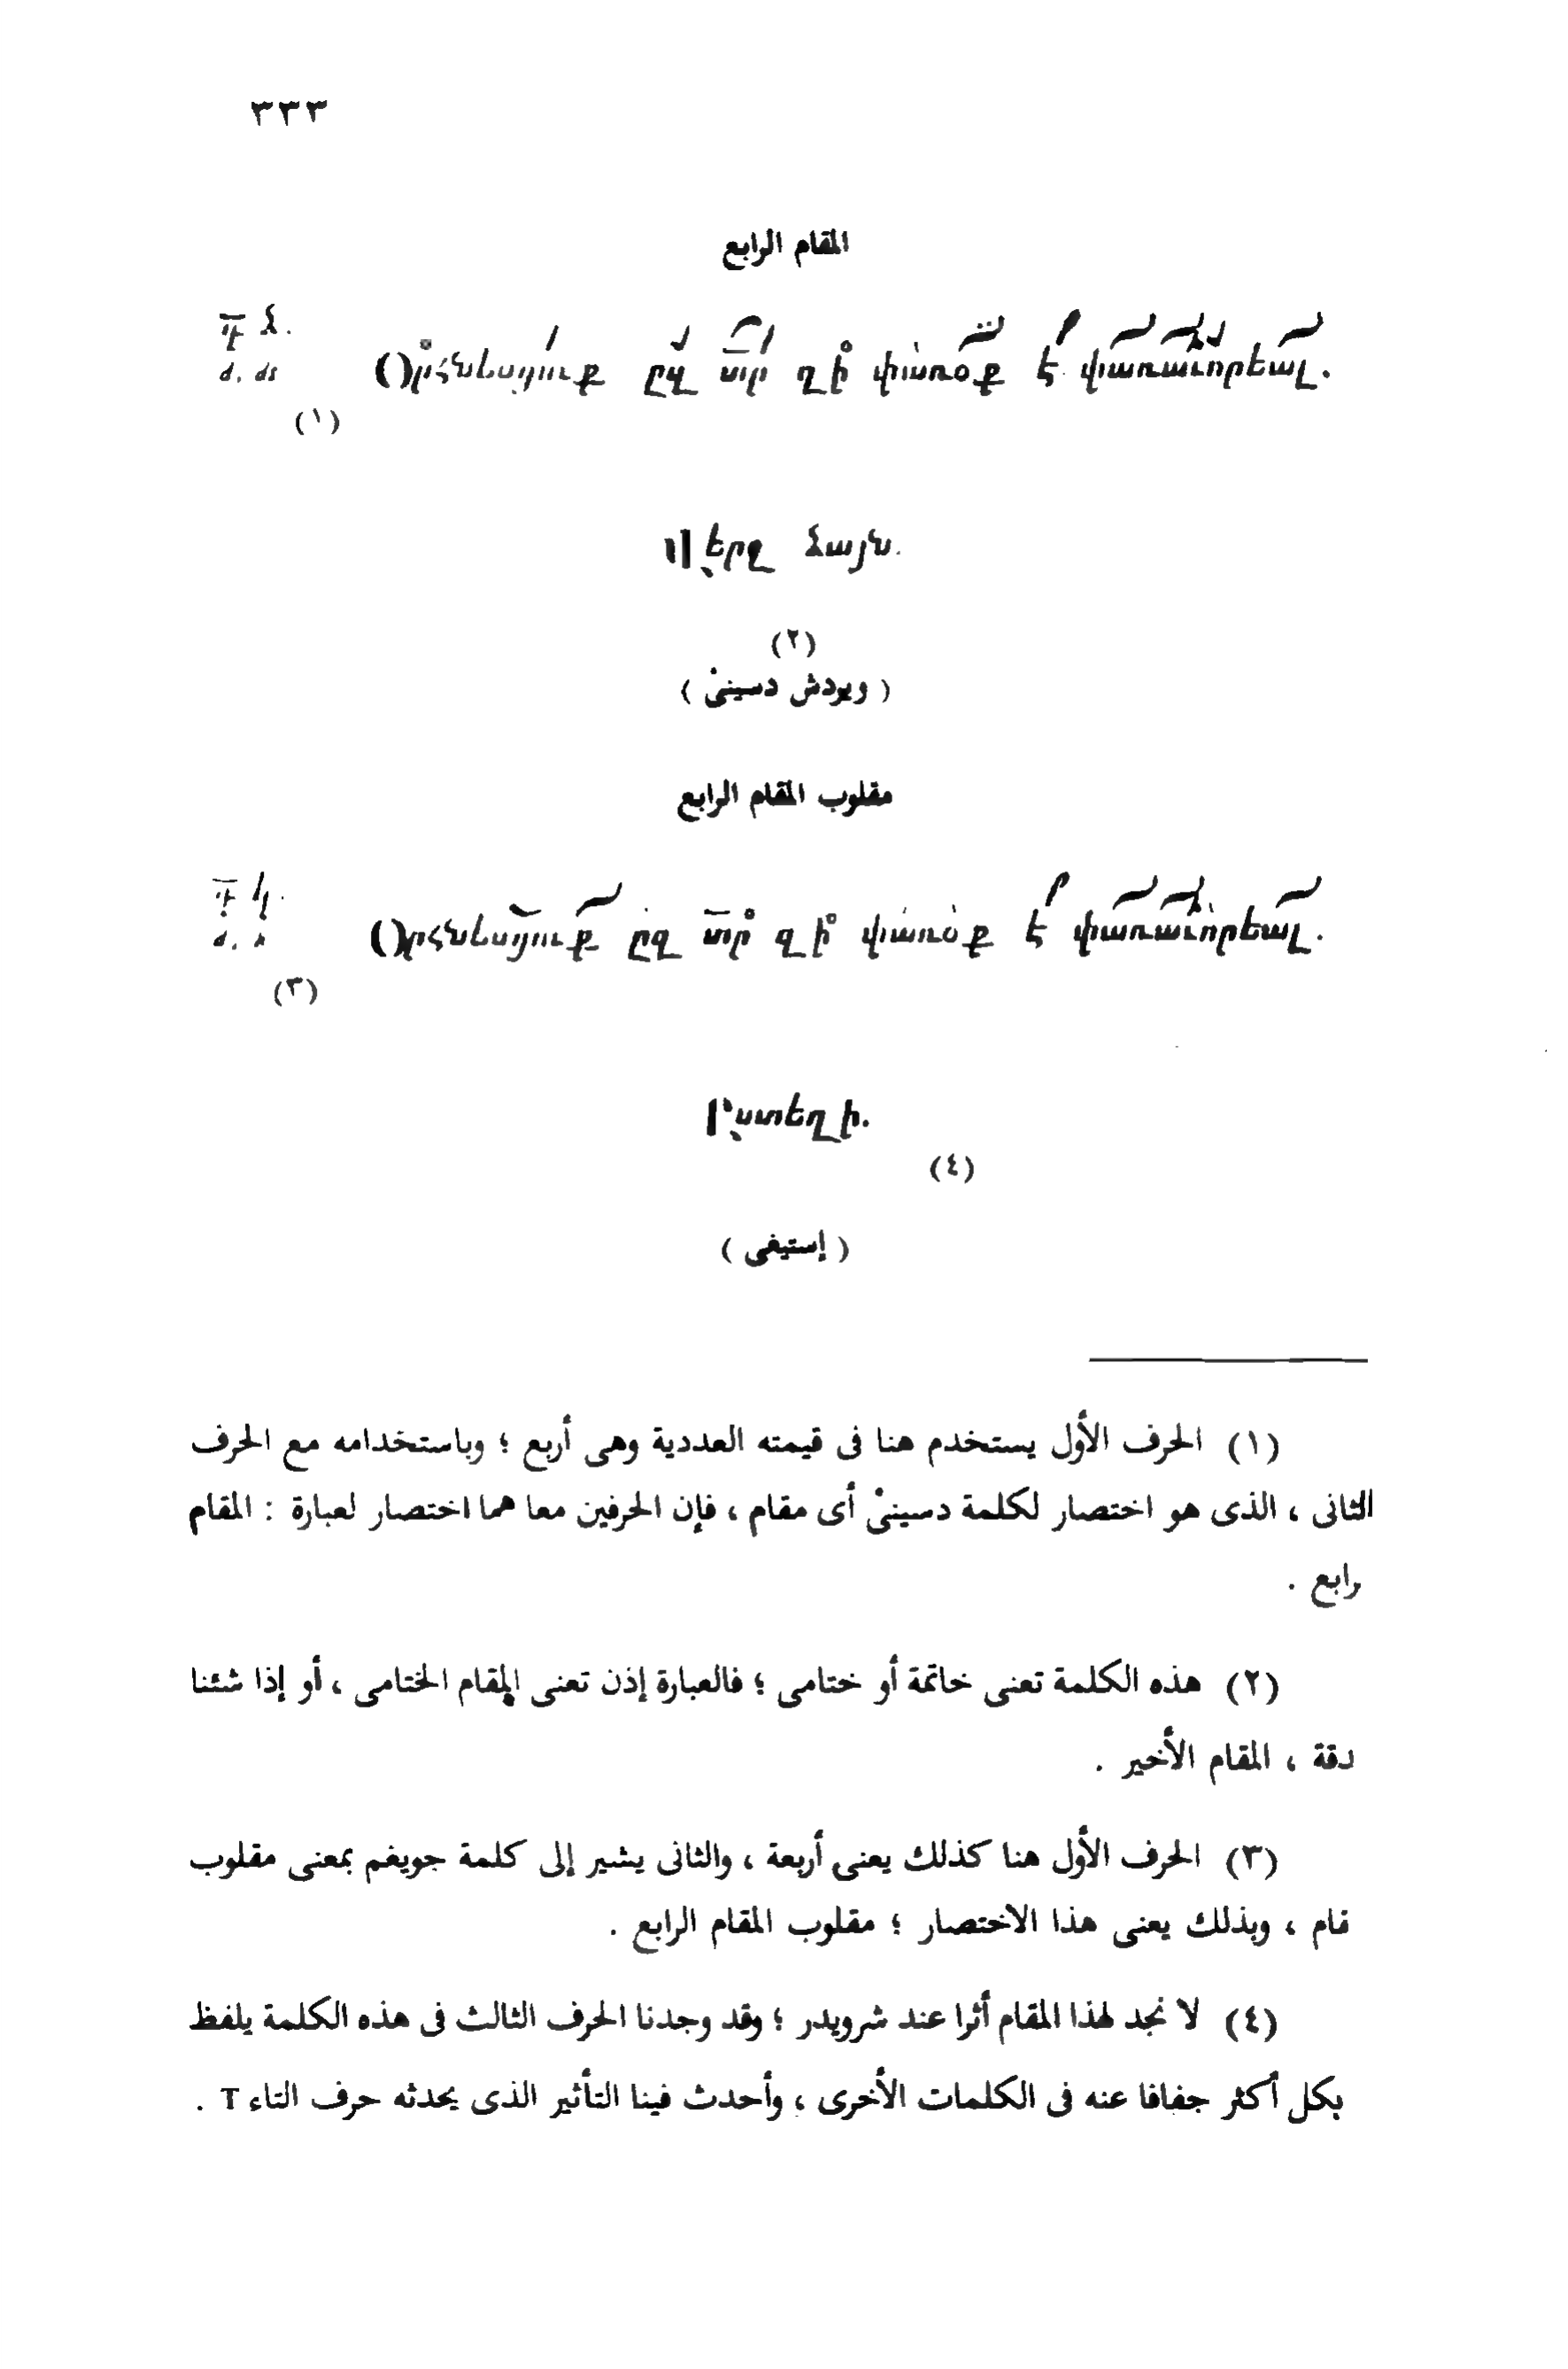 ٣٣٣
المقام الرابع
Օրհնեսցուք ըզ տր զի փառօք է փառաւորեալ.
(١)
Վերջ ձայն.
(٢)
( ويردش دسينىْ )
مقلوب المقام الرابع
Օրհնեսցուք ըզ տր զի փառօք է փառաւորեալ.
(٣)
Ըստեղի.
(٤)
( إستيغى )
(١) الحرف الأول يستخدم هنا فى قيمته العددية وهى أربع ؛ وباستخدامه مع الحرف
الثانى ، الذى هو اختصار لكلمة دسينىْ أى مقام ، فإن الحرفين معا هما اختصار لعبارة : المقام
رابع .
(٢) هذه الكلمة تعنى خاتمة أو ختامى ؛ فالعبارة إذن تعنى المقام الختامى ، أو إذا شئنا
دقة ، المقام الأخير .
(٣) الحرف الأول هنا كذلك يعنى أربعة ، والثانى يشير إلى كلمة جويغم بمعنى مقلوب
قام ، وبذلك يعنى هذا الاختصار ؛ مقلوب المقام الرابع .
(٤) لا نجد لهذا المقام أثرا عند شرويدر ؛ وقد وجدنا الحرف الثالث فى هذه الكلمة يلفظ
بكل أكثر جفافا عنه فى الكلمات الأخرى ، وأحدث فينا التأثير الذى يحدثه حرف التاء T .